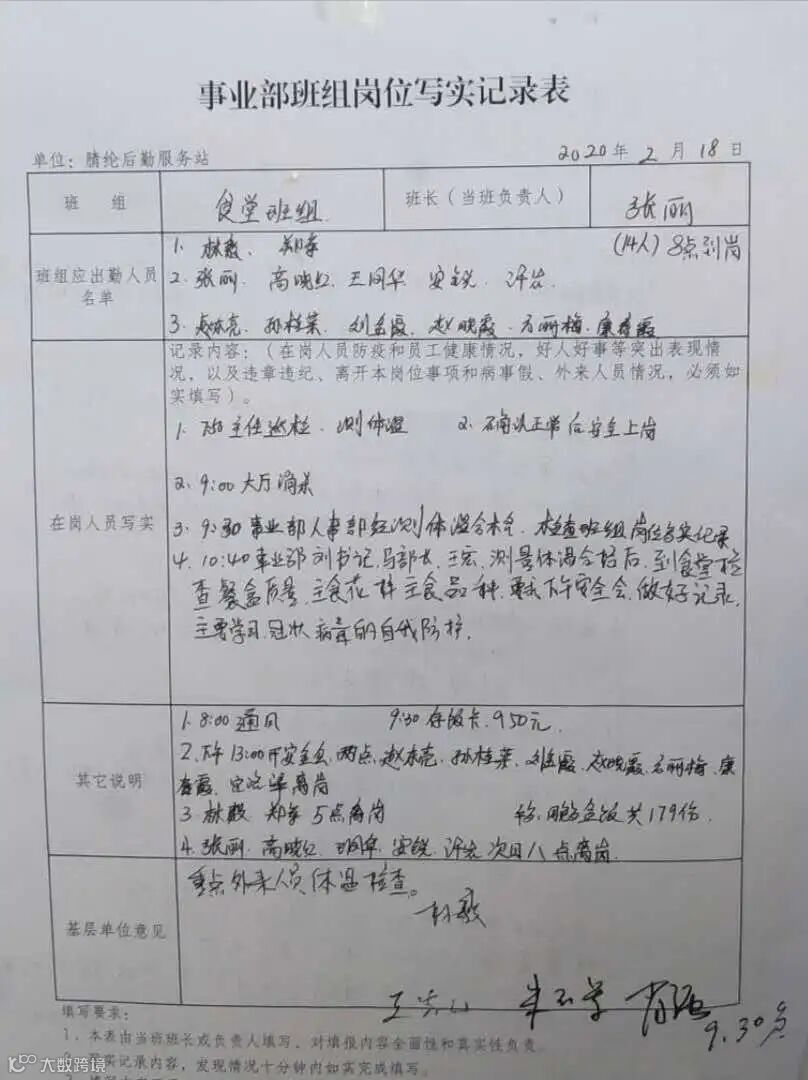 事业部班组岗位写实记录表
单位：腈纶后勤服务站 2020年2月18日
班 组 食堂班组 班长（当班负责人） 张丽
班组应出勤人员名单
1. 林毅、郑军 (14人) 8点到岗
2. 张丽、高晓红、王同华 安锐、许岩
3. 赵东亮、孙桂荣、刘金霞、赵晓霞、石丽梅、康春霞
在岗人员写实
记录内容：（在岗人员防疫和员工健康情况，好人好事等突出表现情
况，以及违章违纪、离开本岗位事项和病事假、外来人员情况，必须如
实填写）。
1. 主任巡检、测体温 2. 确认正常后安全上岗
2. 9:00 大厅消杀
3. 9:30 事业部人事部 测体温合格 检查班组岗位写实记录
4. 10:40 事业部刘书记、马部长、王宏、测量体温合格后，到食堂检
查餐盒质量，主食花样主食品种，要求下午安全会，做好记录，
主要学习冠状病毒的自我防护。
其它说明
1. 8:00 通风 9:30 存饭卡 950元
2. 下午13:00开安全会，两点赵东亮、孙桂荣、刘金霞、赵晓霞、石丽梅、康
春霞、离岗
3. 林毅、郑军 5点离岗 盒饭共179份
4. 张丽、高晓红、王同华、安锐、许岩 次日八点离岗
基层单位意见
重点外来人员体温检查。
林毅
9.30
填写要求：
1、本表由当班班长或负责人填写，对填报内容全面性和真实性负责。
实记录内容，发现情况十分钟内如实完成填写。
大数跨境